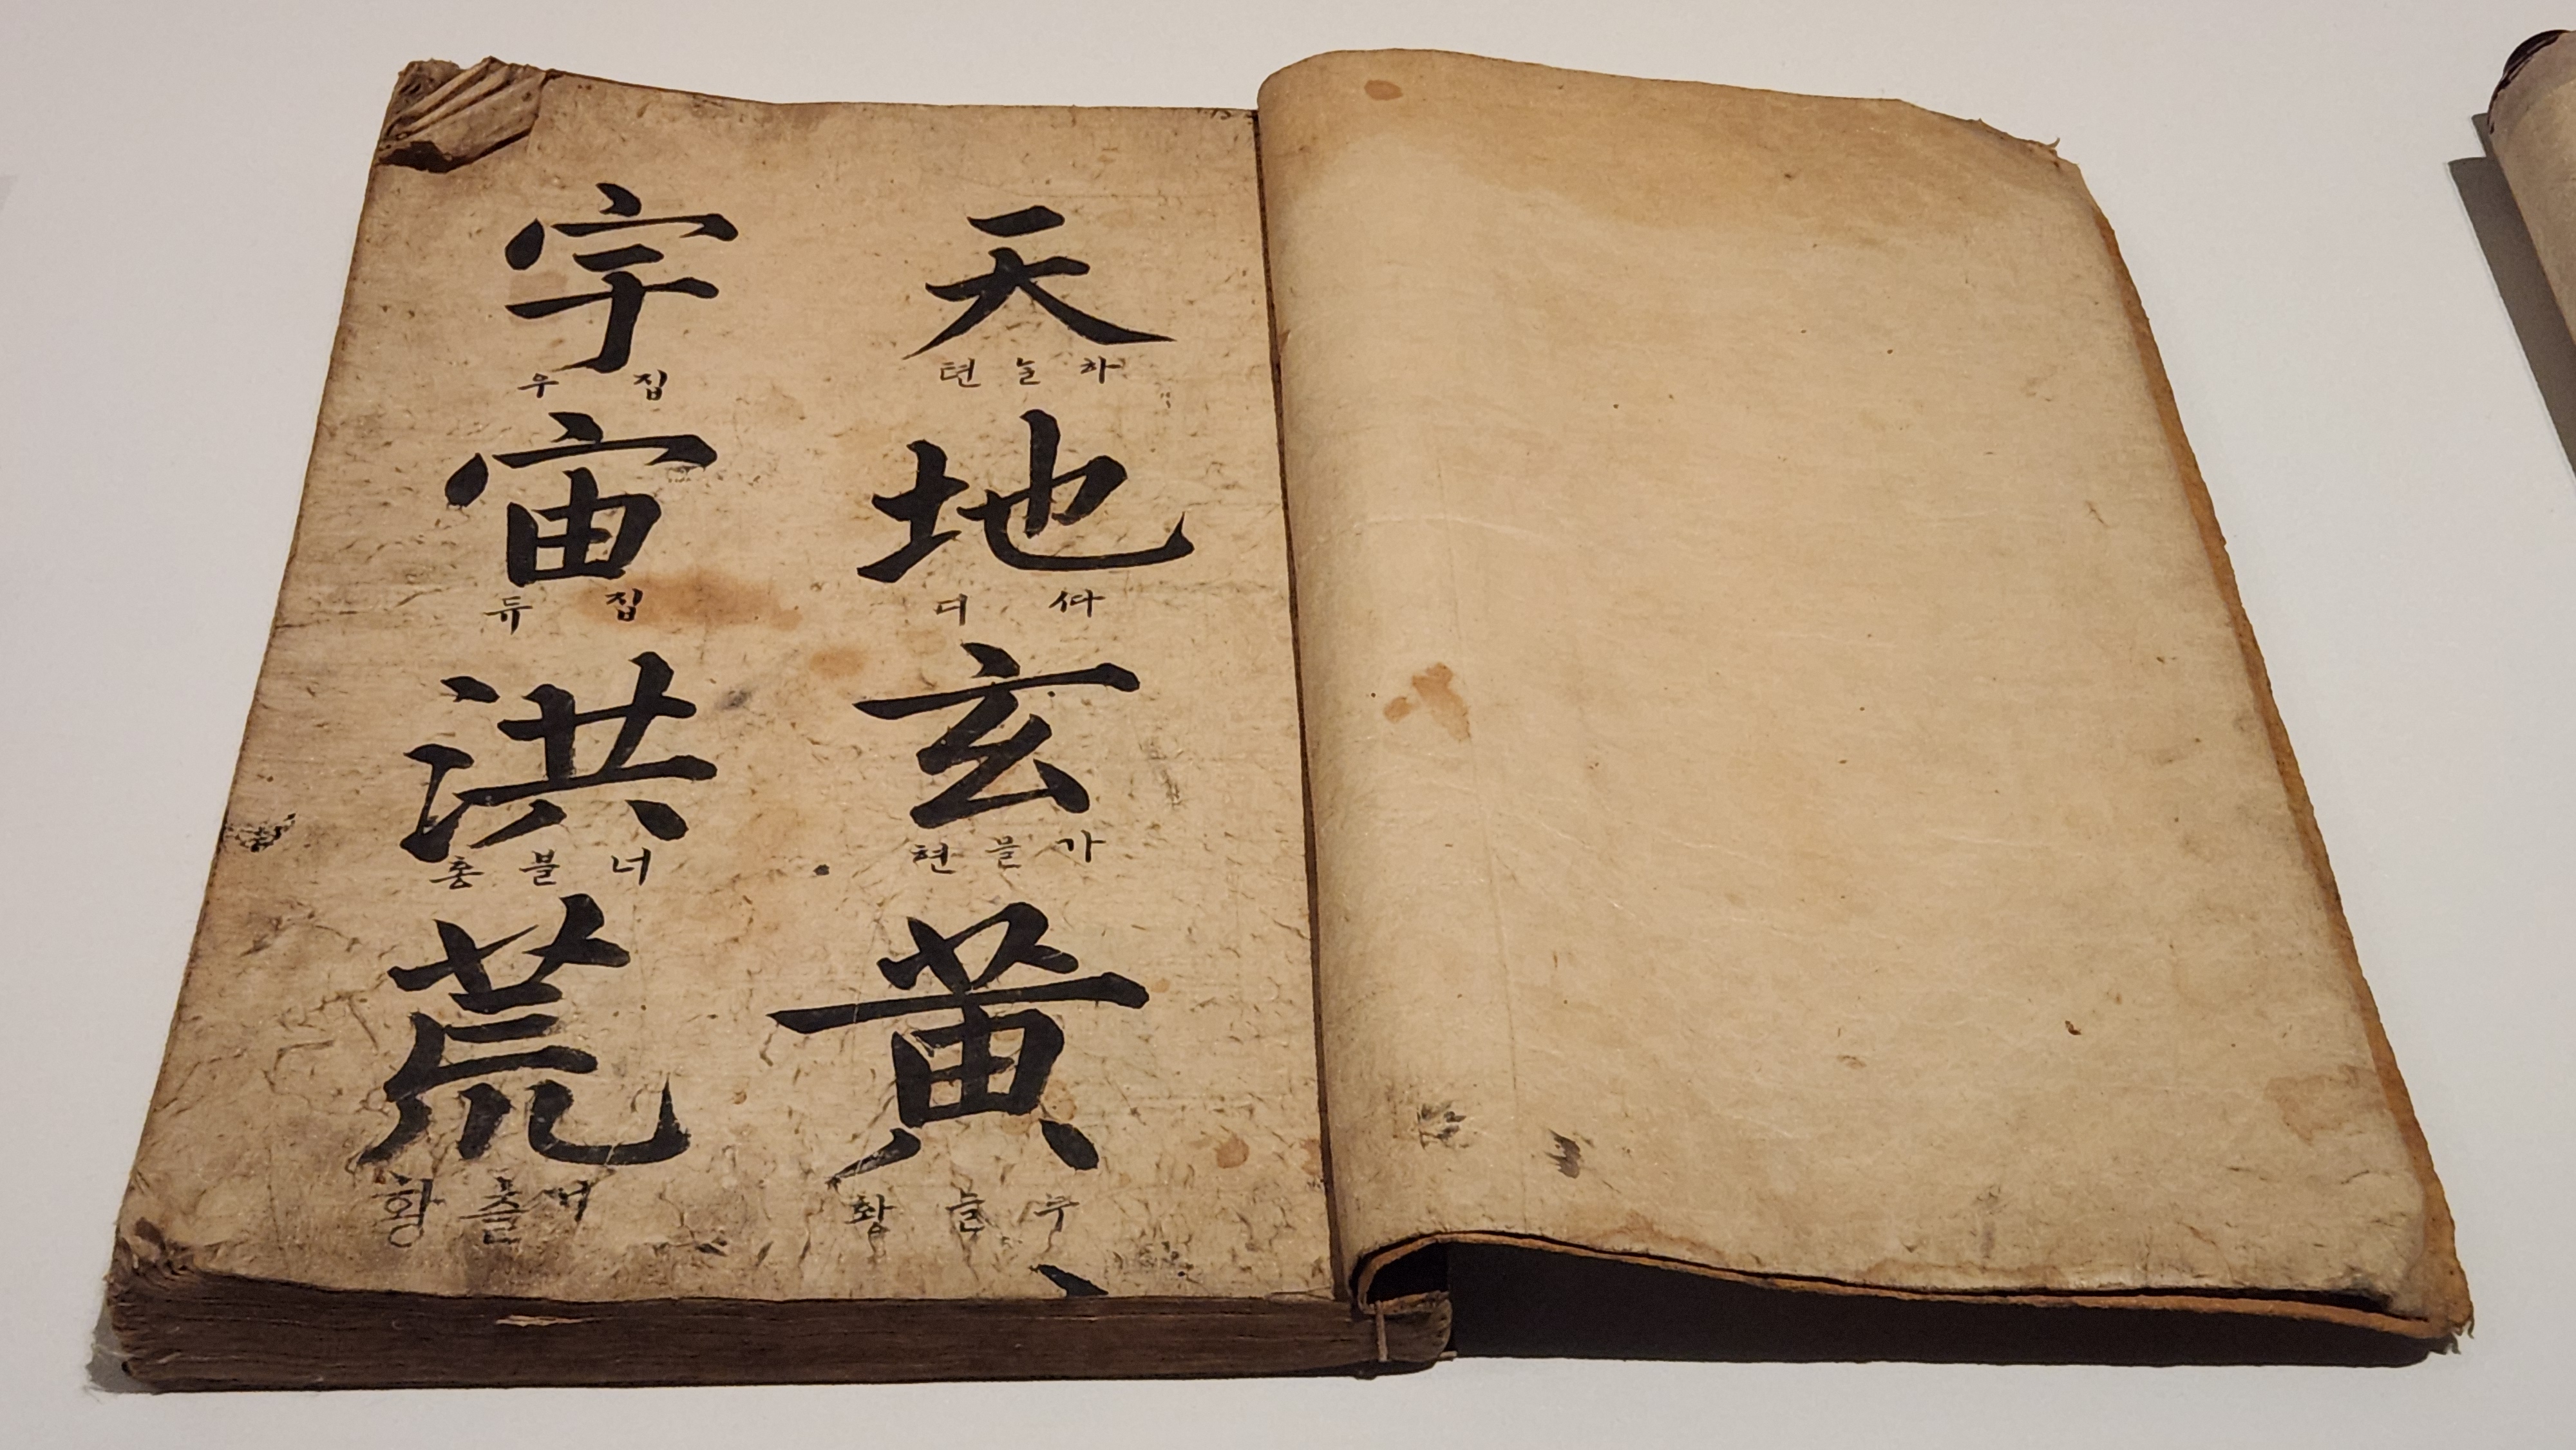 天
하늘 텬
地
ᄯᅡ 디
玄
가믈 현
黃
누늘 황
宇
집 우
宙
집 듀
洪
너블 홍
荒
거츨 황